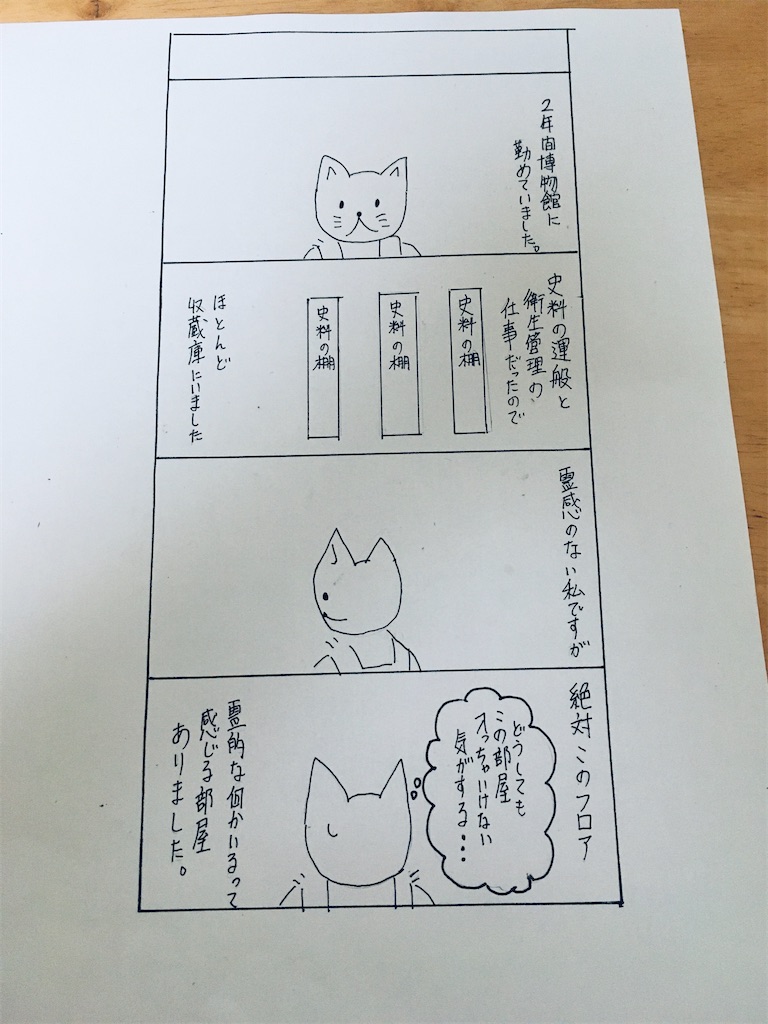 2年間博物館に
勤めていました。
史料の運般と
衛生管理の
仕事だったので
史料の棚
史料の棚
史料の棚
ほとんど
収蔵庫にいました
霊感のない私ですが
絶対このフロア
どうしても
この部屋
入っちゃいけない
気がする…
霊的な何かいるって
感じる部屋
ありました。